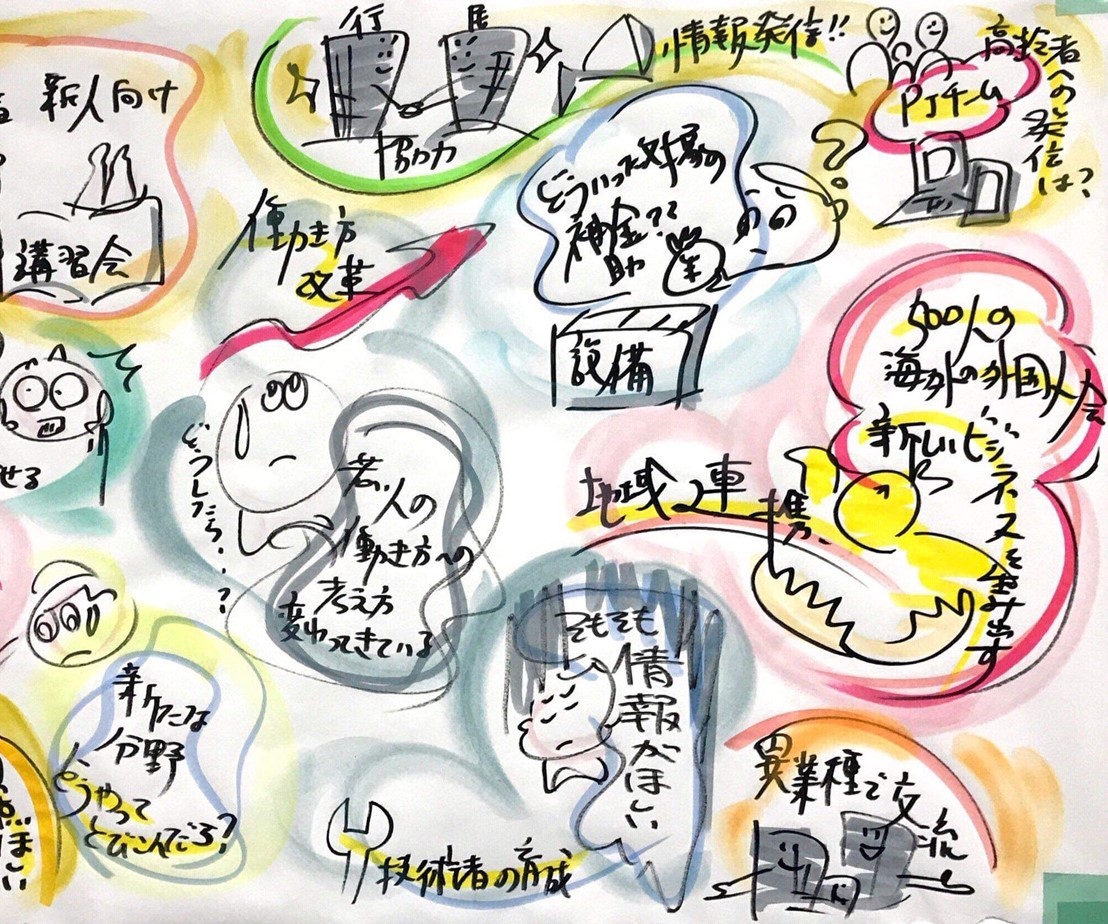 新人向け
講習会
行
協力
情報発信!!
PJチーム
高齢者
への
発信
は?
働き方
改革
どういった対象の
補助金??
業
設備
500人の
海外の外国人会
新しいビジネスを生み出す
地域連携
せる
どうしたら…?
若い人の
働き方への
考え方
変わってきている
そもそも
情報がほしい
新たな
分野
どうやって
とびこんでいこう?
ほしい
技術者の育成
異業種で交流